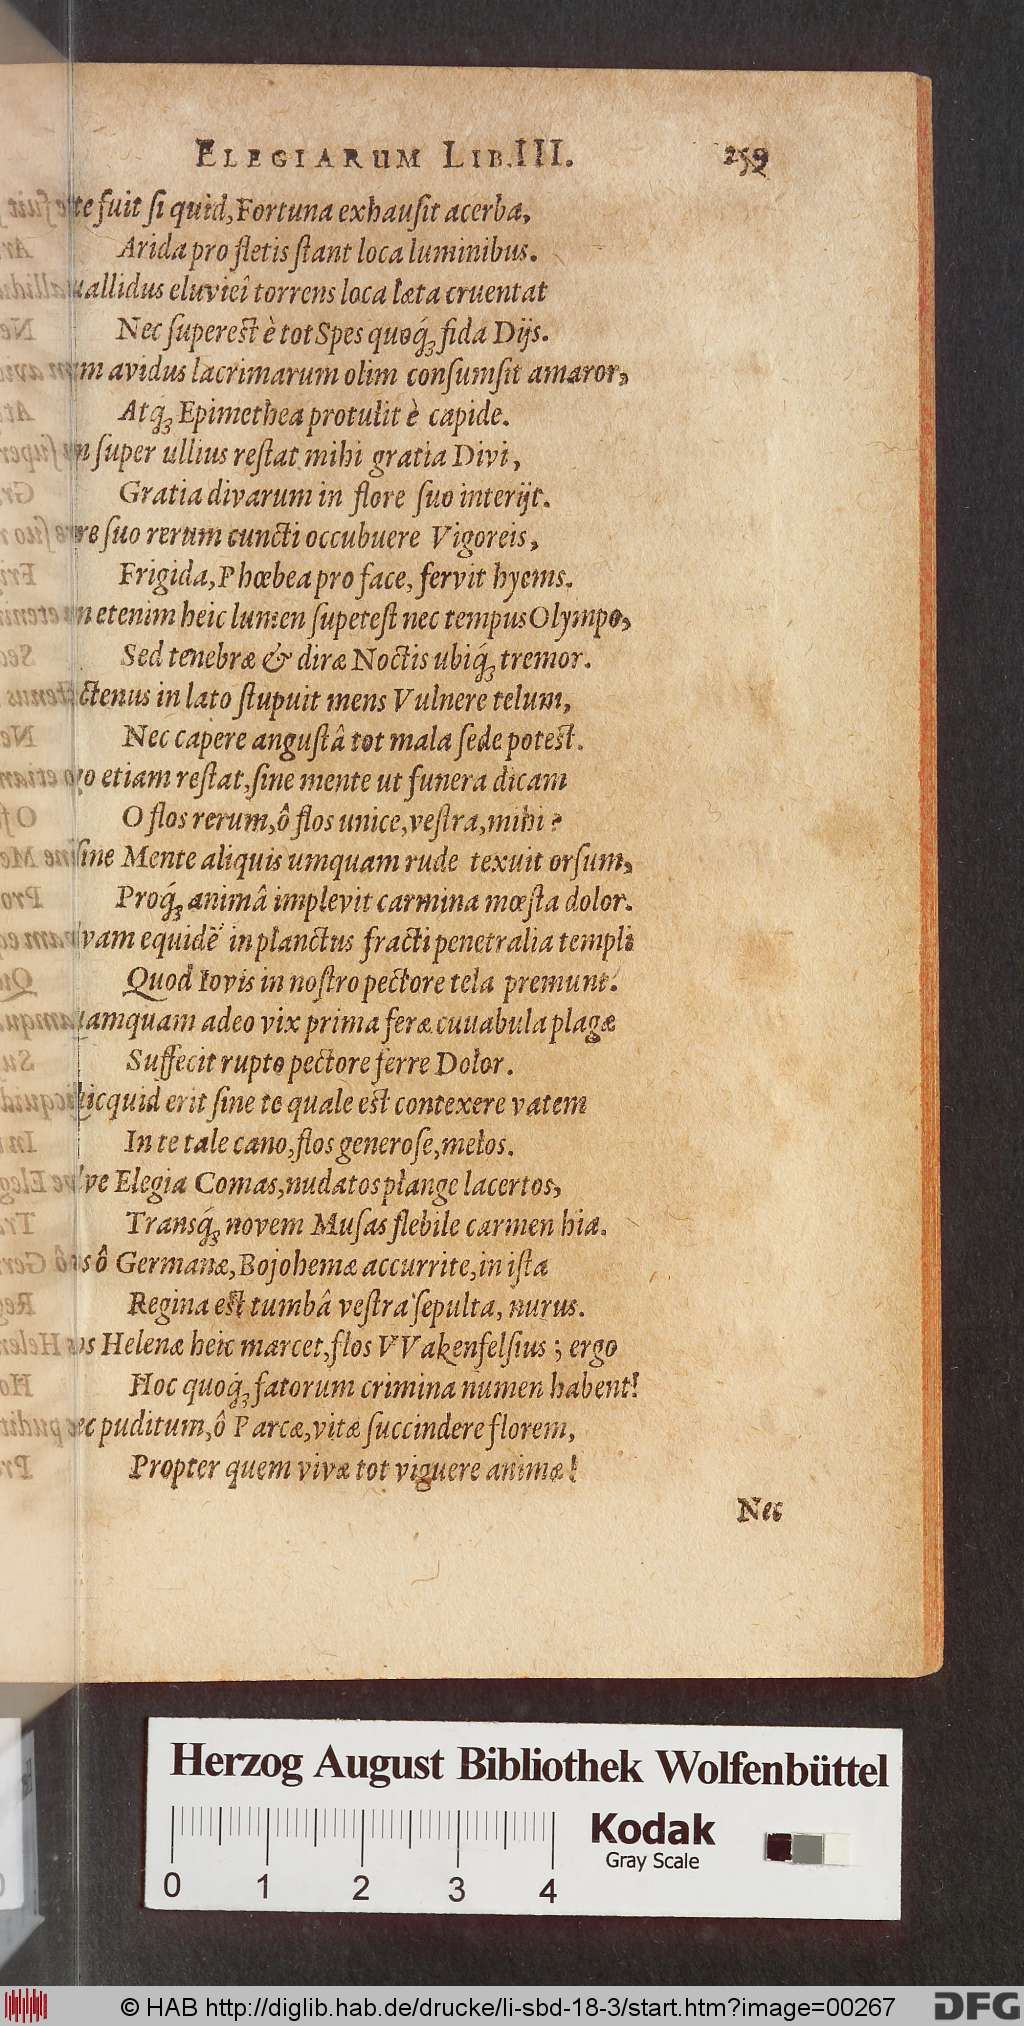 ELEGIARUM LIB.III. 259
te fuit ſi quid, Fortuna exhauſit acerba,
Arida pro fletis ſtant loca luminibus.
allidus eluvieî torrens loca læta cruentat
Nec ſupereſt è tot Spes quoq́ꝫ fida Dijs.
m avidus lacrimarum olim conſumſit amaror,
Atq́ꝫ Epimethea protulit è capide.
n ſuper ullius reſtat mihi gratia Divi,
Gratia divarum in flore ſuo interijt.
re ſuo rerum cuncti occubuere Vigoreis,
Frigida, Phœbea pro face, fervit hyems.
n etenim heic lumen ſupeteſt nec tempus Olympo,
Sed tenebræ & diræ Noctis ubiq́ꝫ tremor.
ctenus in lato ſtupuit mens Vulnere telum,
Nec capere anguſtâ tot mala ſede poteſt.
go etiam reſtat, ſine mente ut funera dicam
O flos rerum, ô flos unice, veſtra, mihi?
ſine Mente aliquis umquam rude texuit orſum,
Proq́ꝫ animâ implevit carmina mœſta dolor.
vam equidẽ in planctus fracti penetralia templi
Quod Iovis in noſtro pectore tela premunt.
amquam adeo vix prima feræ cuuabula plagæ
Suffecit rupto pectore ferre Dolor.
icquid erit ſine te quale eſt contexere vatem
In te tale cano, flos generoſe, melos.
ve Elegia Comas, nudatos plange lacertos,
Transq́ꝫ novem Muſas flebile carmen hia.
s ô Germanæ, Bojohemæ accurrite, in iſta
Regina eſt tumbâ veſtra ſepulta, nurus.
os Helenæ heic marcet, flos VVakenfelſius; ergo
Hoc quoq́ꝫ fatorum crimina numen habent!
ec puditum, ô Parcæ, vitæ ſuccindere florem,
Propter quem vivæ tot viguere animæ!
Nec
Herzog August Bibliothek Wolfenbüttel
Kodak
Gray Scale
0 1 2 3 4
© HAB http://diglib.hab.de/drucke/li-sbd-18-3/start.htm?image=00267
DFG